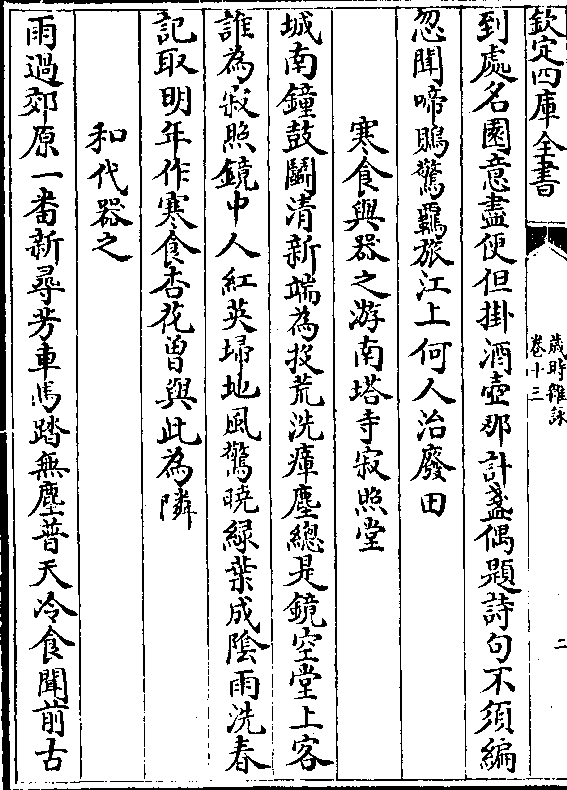 欽定四庫全書
歲時雜詠
卷十三
二
到處名園意盡便但掛酒壺那計盞偶題詩句不須編
忽聞啼鵙驚羈旅江上何人治廢田
寒食與器之游南塔寺寂照堂
城南鐘鼓鬭清新端為投荒洗瘴塵總是鏡空堂上客
誰為寂照鏡中人紅英埽地風驚曉緑葉成陰雨洗春
記取明年作寒食杏花曽與此為隣
和代器之
雨過郊原一番新尋芳車馬踏無塵普天冷食聞前古